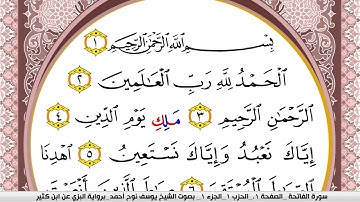 بِسْمِ ٱللَّهِ ٱلرَّحْمَٰنِ ٱلرَّحِيمِ ١
ٱلْحَمْدُ لِلَّهِ رَبِّ ٱلْعَٰلَمِينَ ٢
ٱلرَّحْمَٰنِ ٱلرَّحِيمِ ٣ مَلِكِ يَوْمِ ٱلدِّينِ ٤
إِيَّاكَ نَعْبُدُ وَإِيَّاكَ نَسْتَعِينُ ٥ ٱهْدِنَا
سورة الفاتحة_ الصفحة ١_ الحزب ١_ الجزء ١_ بصوت الشيخ يوسف نوح أحمد_ برواية البزي عن ابن كثير